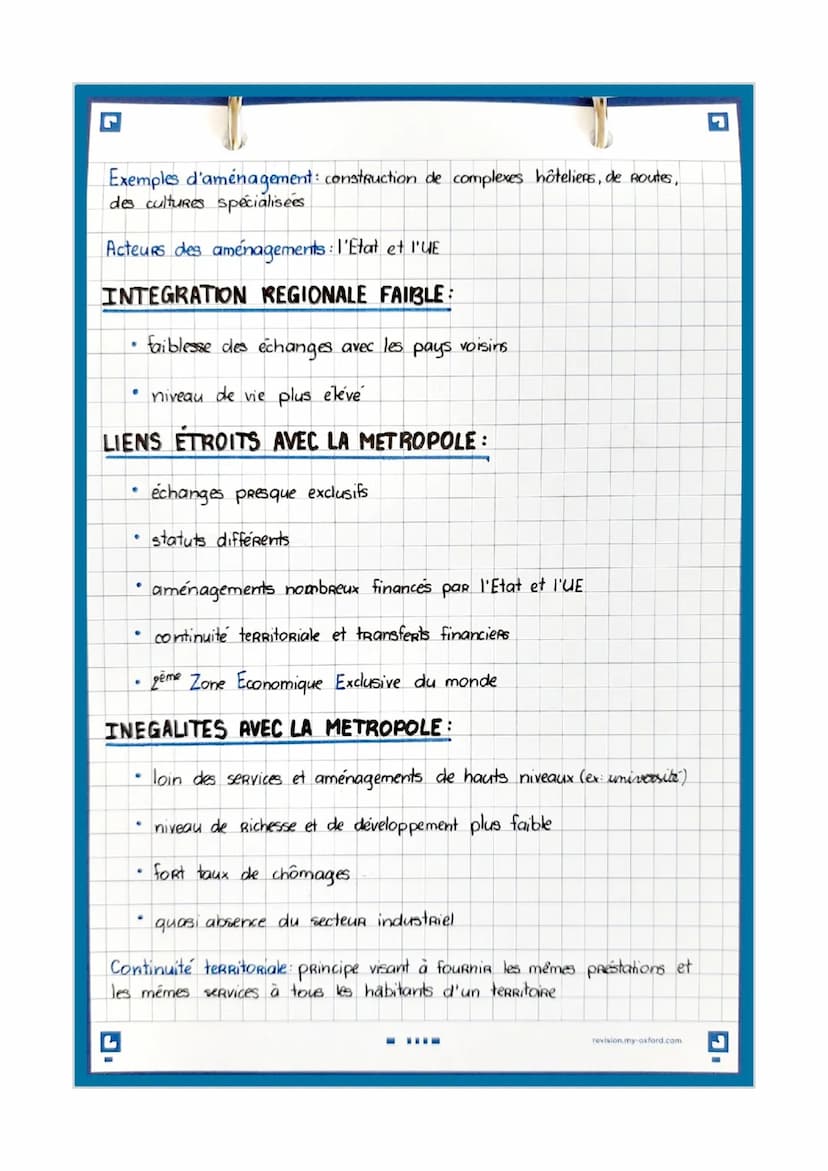 Exemples d'aménagement: construction de complexes hôteliers, de routes,
des cultures spécialisées
Acteurs des aménagements: l'Etat et l'UE
INTEGRATION REGIONALE FAIBLE:
• faiblesse des échanges avec les pays voisins
• niveau de vie plus elévé
LIENS ÉTROITS AVEC LA METROPOLE:
• échanges presque exclusifs
• statuts différents
• aménagements nombreux financés par l'Etat et l'UE
• continuité territoriale et transferts financiers
• 2ème Zone Economique Exclusive du monde
INEGALITES AVEC LA METROPOLE:
• loin des services et aménagements de hauts niveaux (ex: université)
• niveau de richesse et de développement plus faible
• fort taux de chômages
• quasi absence du secteur industriel
Continuité territoriale: principe visant à fournir les mêmes prestations et
les mêmes services à tous les habitants d'un territoire
revision.my-oxford.com